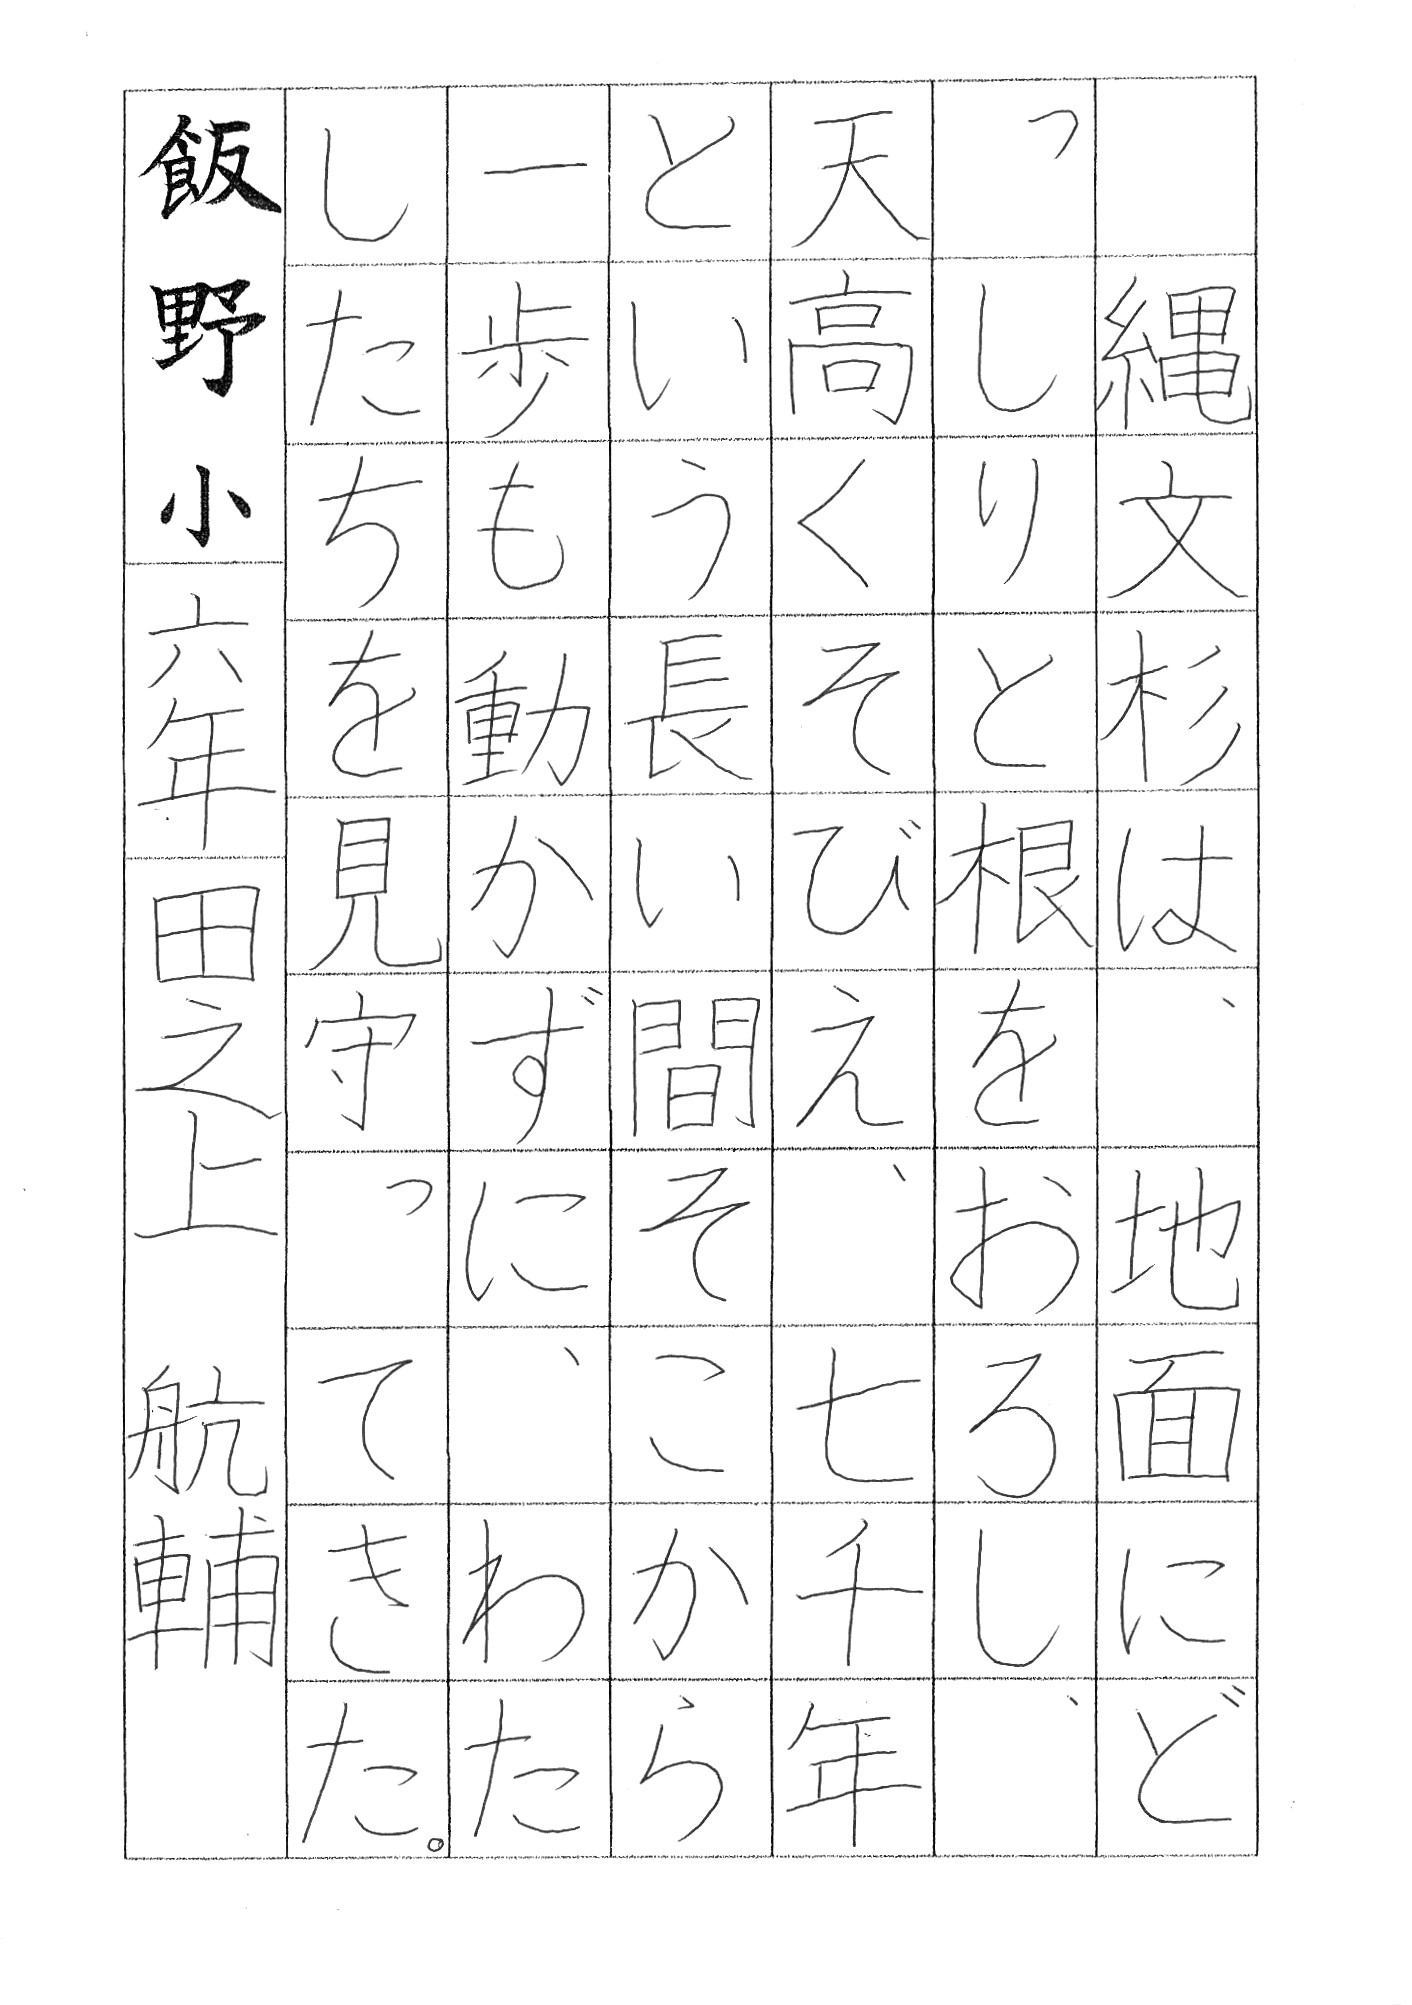 縄文杉は、地面にど
っしりと根をおろし、
天高くそびえ、七千年
という長い間そこから
一歩も動かずに、わた
したちを見守ってきた。
飯野小 六年 田之上 航輔